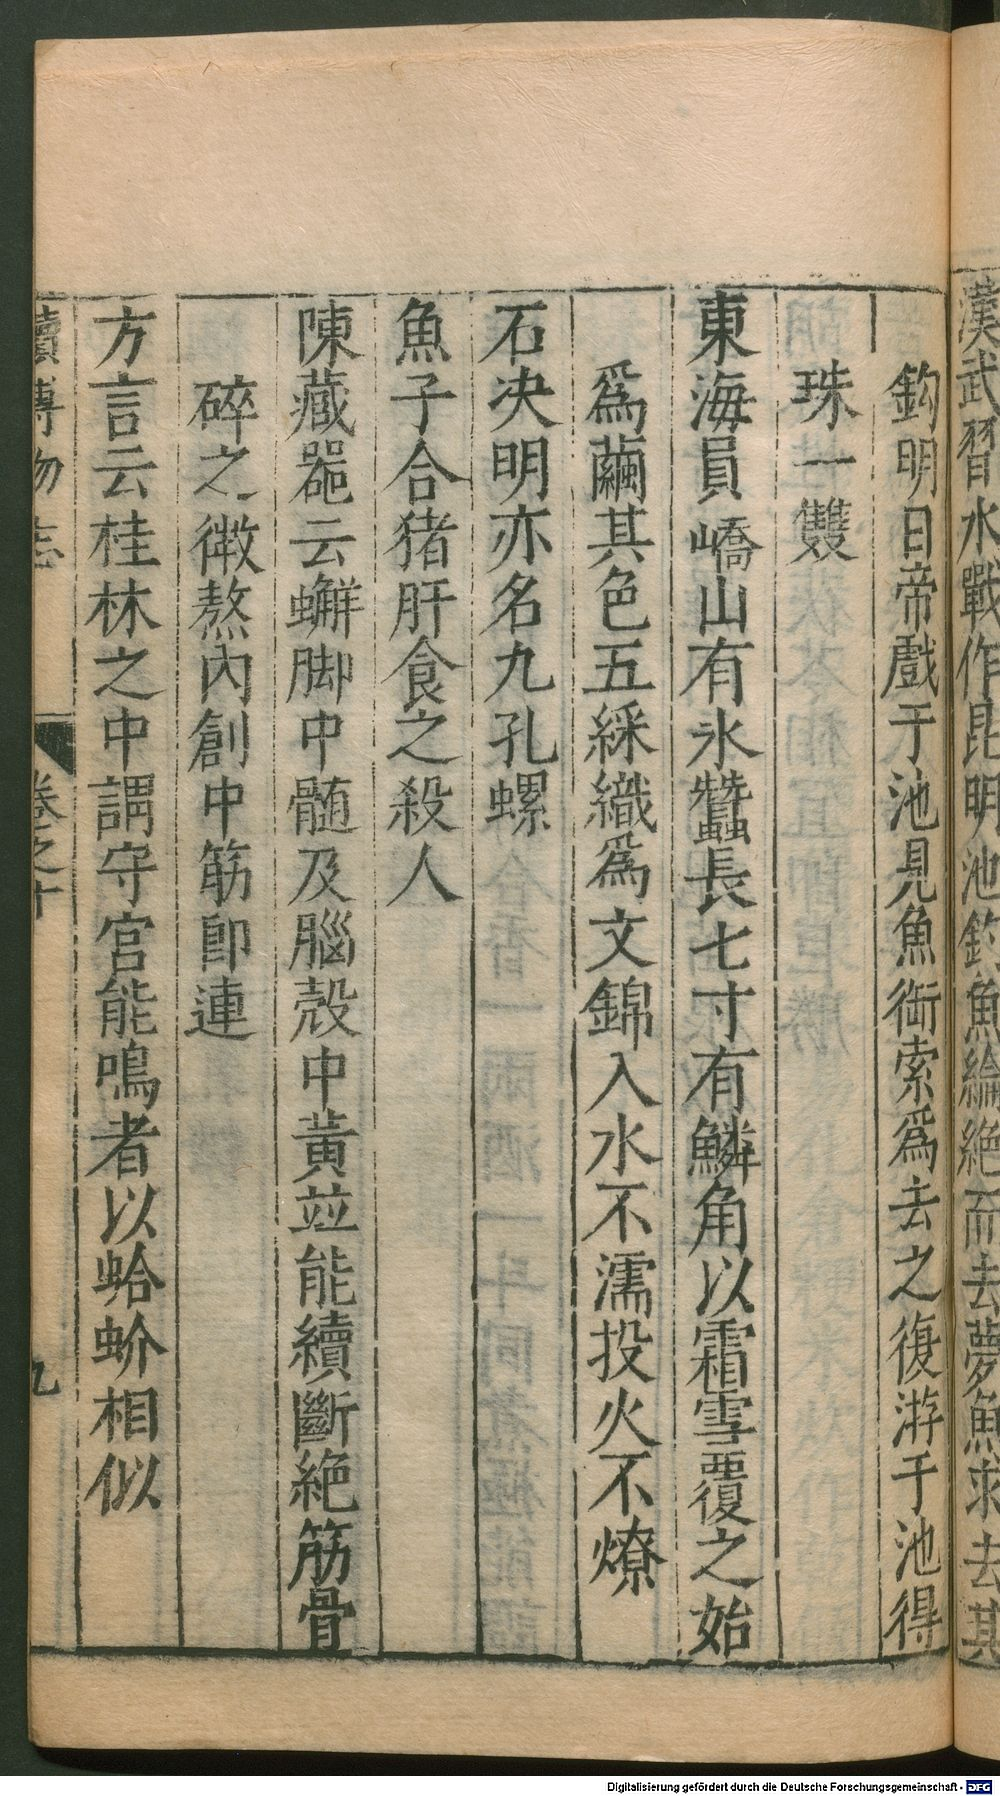 漢武習水戰作昆明池釣魚綸絶而去夢魚求去其
鈎明日帝戲于池見魚銜索爲去之復游于池得
珠一雙
東海員嶠山有氷蠶長七寸有鱗角以霜雪覆之始
爲繭其色五綵織爲文錦入水不濡投火不燎
石决明亦名九孔螺
魚子合猪肝食之殺人
陳藏噐云蠏脚中髄及腦殻中黄並能續斷絶筋骨
碎之微熬內創中筋卽連
方言云桂林之中謂守宫能鳴者以蛤蚧相似
續博物志 卷之十 九
Digitalisierung gefördert durch die Deutsche Forschungsgemeinschaft - DFG